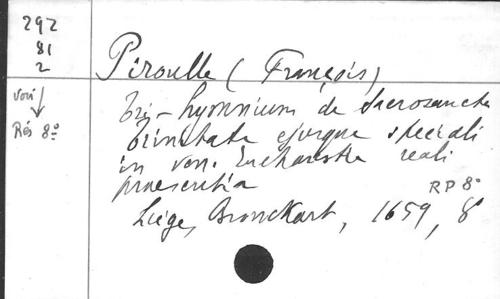 292
81
2
Piroulle (François)
voir
Rés 8º
Tris-hymnium de Sacrosancta
trinitate ejusque speciali
in ven. Eucharistia reali
praesentia
RP 8º
Liège, Bronckart, 1659, 8º